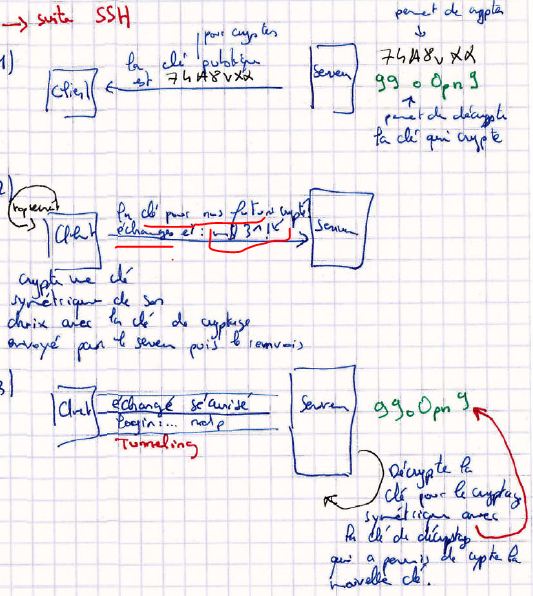 → suite SSH
permet de crypter
pour crypter
1)
la clé publique
est 74A8vXX
Client
Serveur
74A8vXX
99o0pn9
permet de décrypter
la clé qui crypte
2)
Client
la clé pour nos futurs crypté
échanges est :
Serveur
crypte une clé
symétrique de son
choix avec la clé de cryptage
envoyé par le serveur puis le renvois
3)
Client
échangé sécurisé
login:... mdp
Tunneling
Serveur
99o0pn9
Décrypte la
clé pour le cryptage
symétrique avec
la clé de décryptage
qui a permis de crypter la
nouvelle clé.